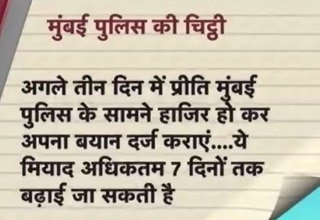 मुंबई पुलिस की चिट्ठी
अगले तीन दिन में प्रीति मुंबई
पुलिस के सामने हाजिर हो कर
अपना बयान दर्ज कराएं....ये
मियाद अधिकतम 7 दिनों तक
बढ़ाई जा सकती है